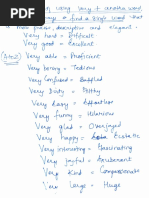 using very + another word
& find a single word that
more precise and elegant.
Very hard = Difficult
Very good = Excellent
A to Z
Very able = Proficient
Very boring = Tedious
Very Confused = Baffled
Very Dirty = Filthy
Very Easy = Effortless
Very funny = Hilarious
Very glad = Overjoyed
Very happy = Ecstatic
Very interesting = Fascinating
Very joyful = Exuberant
Very Kind = Compassionate
Very Large = Huge